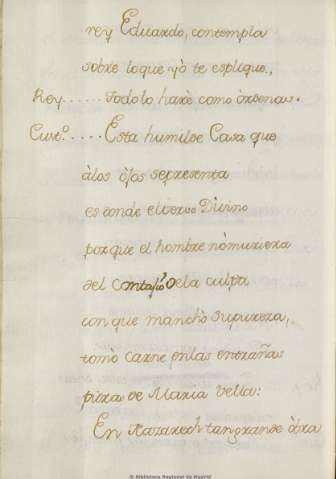 rey Eduardo, contempla
sobre loque yò te esplique.,
Rey...... Todolo harè como òrdenas.
Curò.º.... Esta humilde Casa que
àlos òjos serpresenta
es donde elverso Divino
porque el hombre nòmuriera
del contagio dela culpa
con que manchò supureza,
tomò carne enlas entrañas
puras de Maria bella:
En Nazareth tan grande òbra
© Biblioteca Regional de Madrid